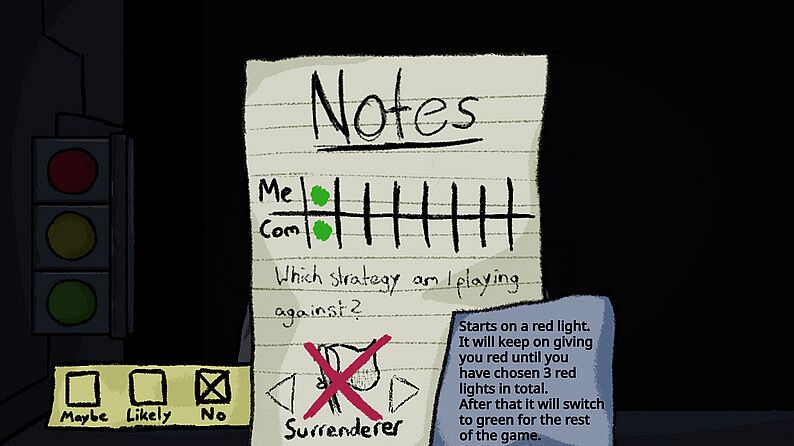 Notes
Me
Com
Which strategy am I playing
against?
Surrenderer
Maybe Likely No
Starts on a red light.
It will keep on giving
you red until you
have chosen 3 red
lights in total.
After that it will switch
to green for the rest
of the game.